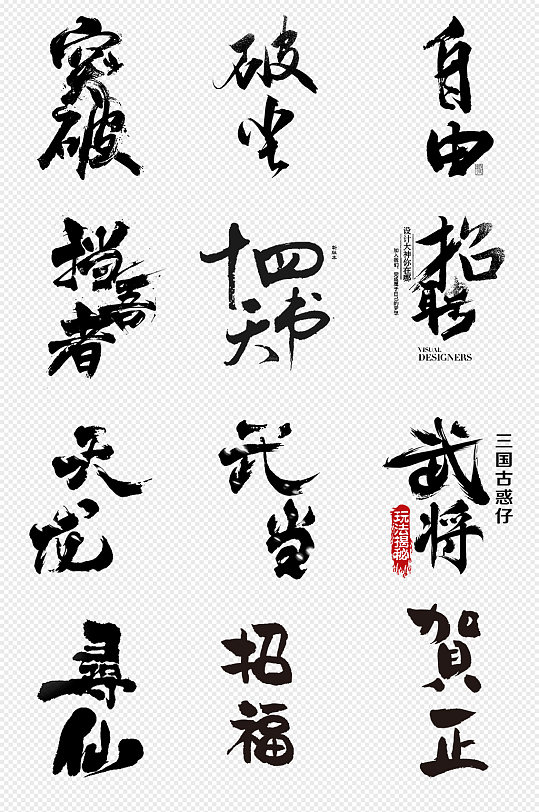 突破
破
自由
挡吾者
十四天书
招聘
设计大神你在哪
VISUAL
DESIGNERS
天
武当
武将
三国古惑仔
玩法揭秘
尋仙
招福
賀正